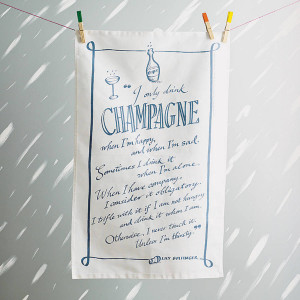 "I only drink
CHAMPAGNE
when I'm happy,
and when I'm sad.
Sometimes I drink it
when I'm alone.
When I have company,
I consider it obligatory.
I trifle with it if I am not hungry
and drink it when I am.
Otherwise, I never touch it.
Unless I'm thirsty."